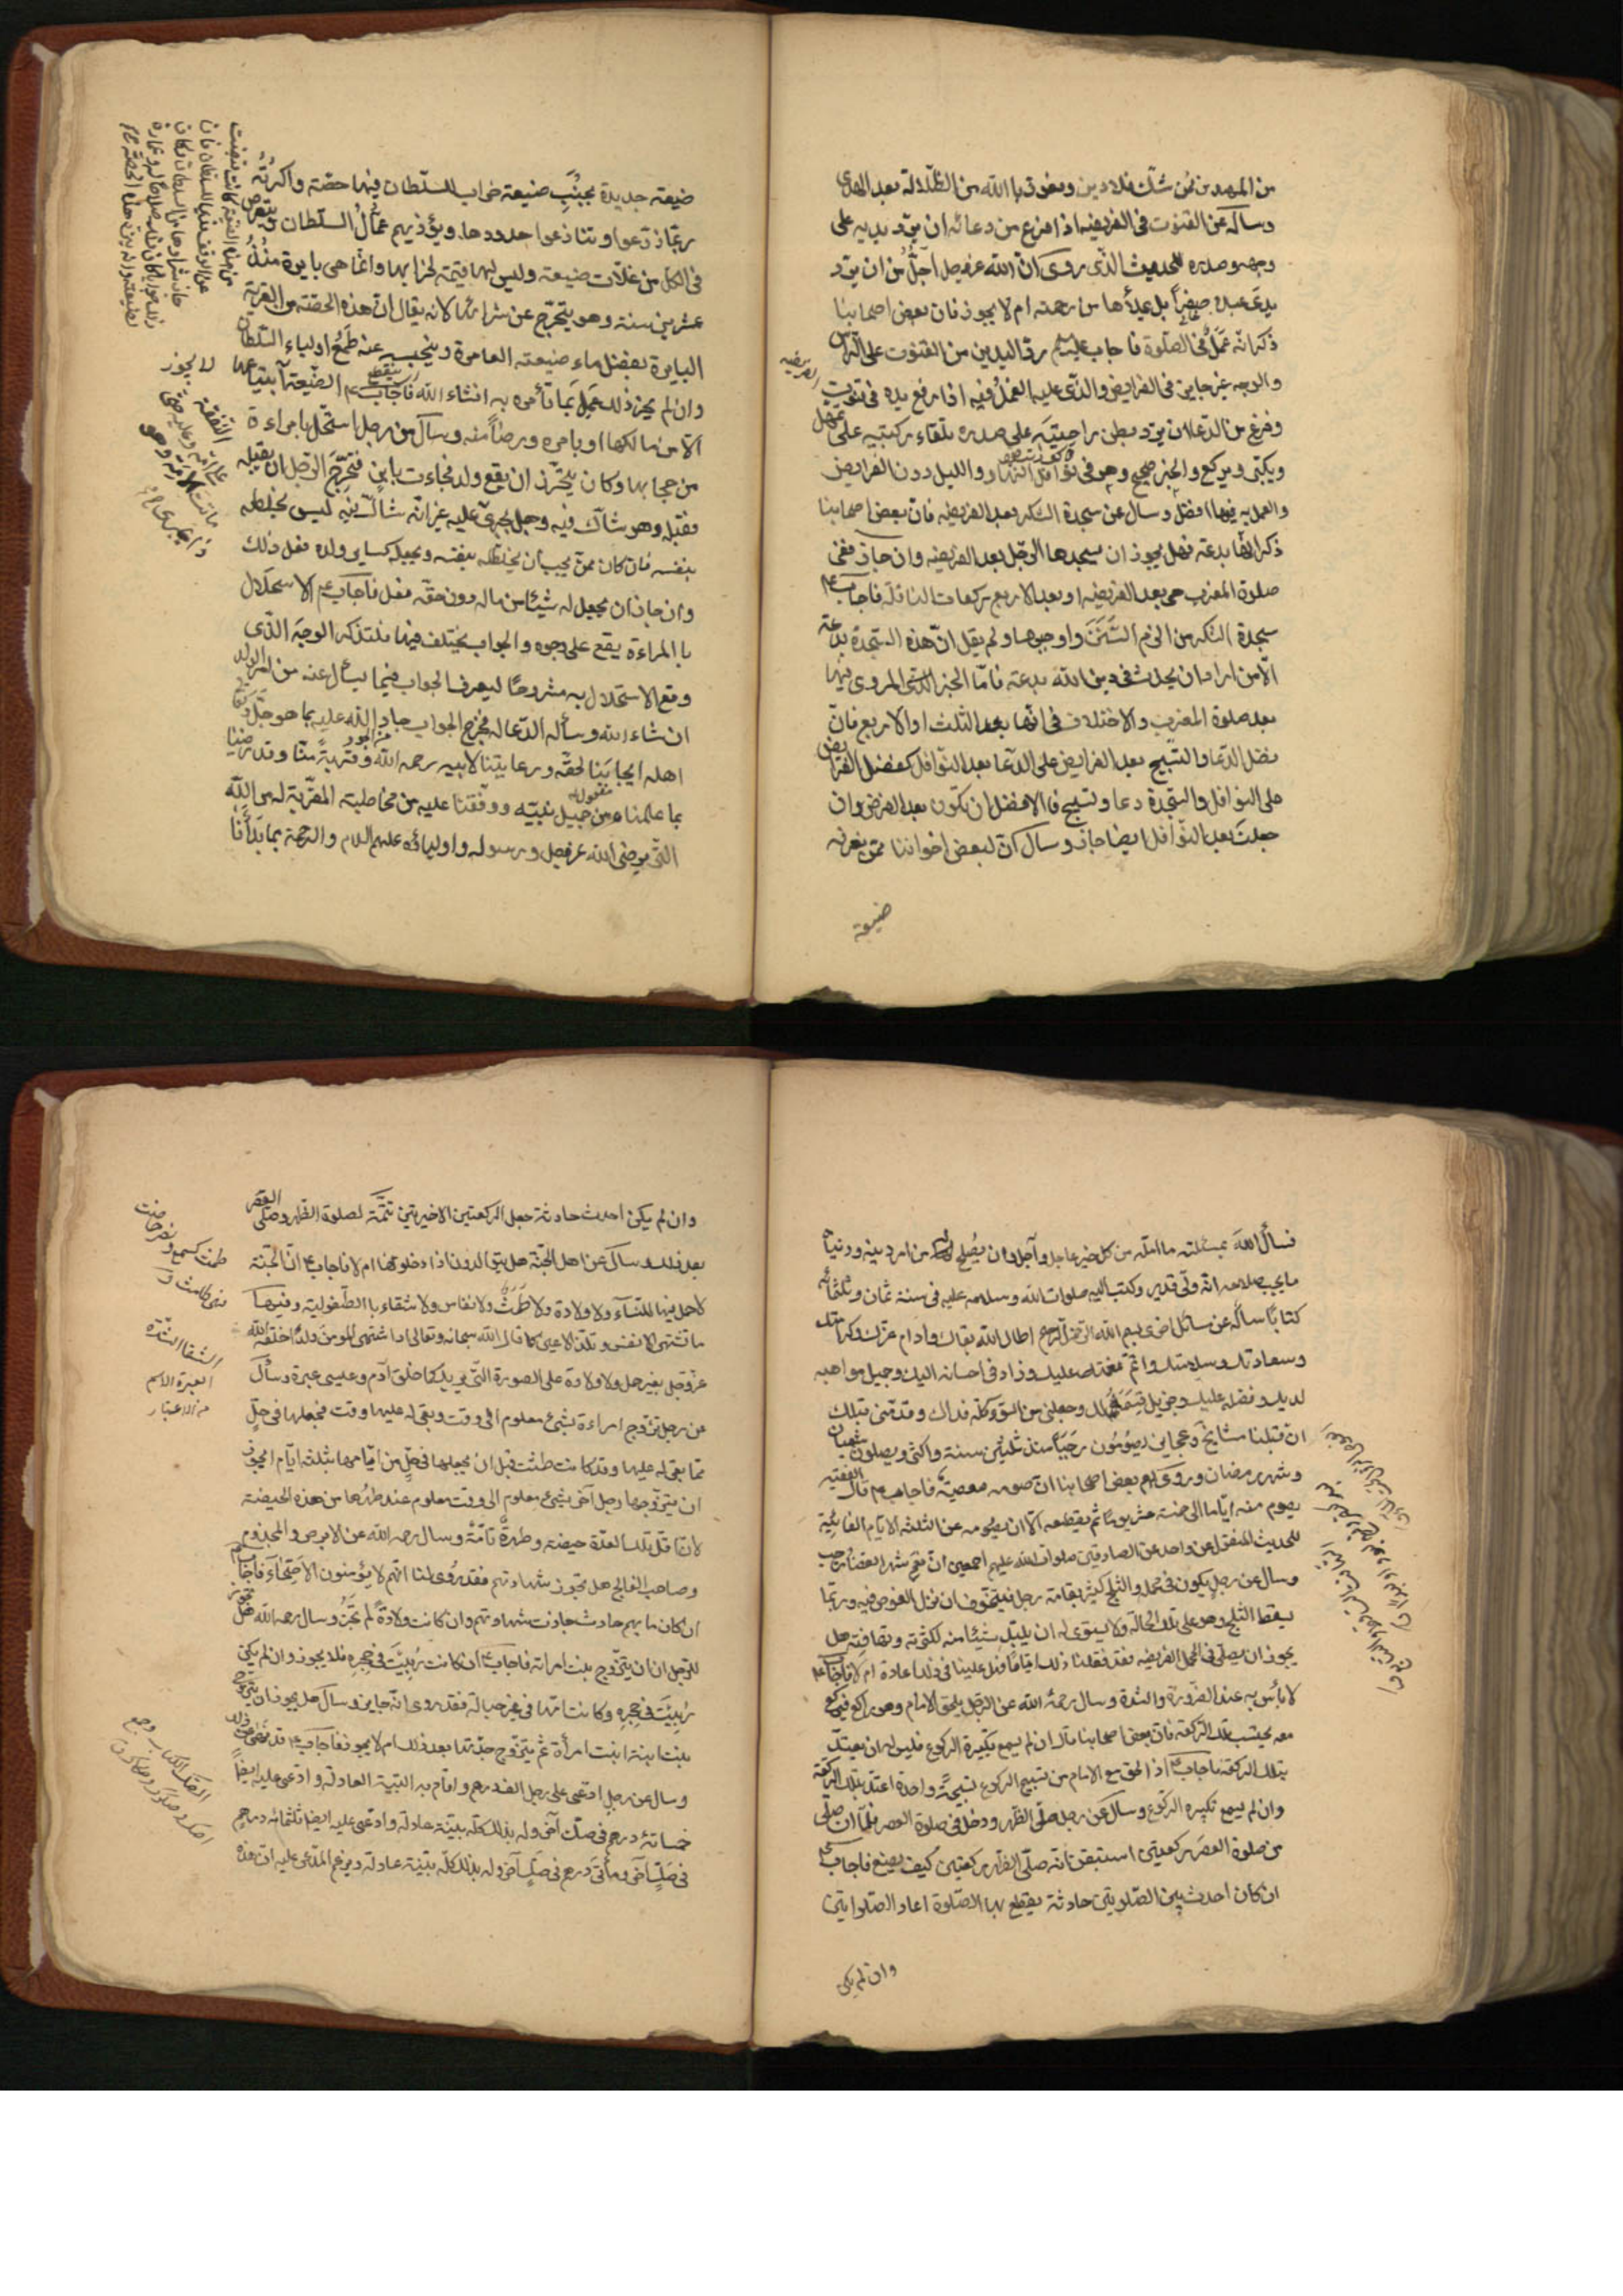 من المهتدين فمن شك فلا دين ونعوذ باالله من الضلالة بعد الهدى
وساله عن القنوت فى الفريضه اذا فرغ من دعائه ان يرد يديه على
وجهه وصدره للحديث الذى روى انّ الله عزوجل اجلّ من ان يرد
يدى عبده صفراً بل يملأها من رحمته ام لا يجوز فان بعض اصحابنا
ذكر انّه عمل فى الصلوة فاجاب عليه السلم ردّ اليدين من القنوت على الرأس
والوجه غير جايز فى الفرايض والذى عليه العمل فيه اذا رفع يده فى قنوت
الفريضه
وفرغ من الدعا ان يرد بطن راحتيه على صدره تلقاء ركبتيه على تمهل
ويكبّر ويركع والخبر صحيح وهو فى نوافل النهار والليل دون الفرايض
والعمل به فيها افضل وسال عن سجدة الشكر بعد الفريضه فانّ بعض اصحابنا
ذكر انّها بدعة فهل يجوز ان يسجدها الرجل بعد الفريضه وان جاز ففى
صلوة المغرب هى بعد الفريضه او بعد الاربع ركعات النافله فاجاب ع
سجدة الشكر من الزم السنن واوجبها ولم يقل انّ هذه السجدة بدعة
الّا من اراد ان يحدث فى دين الله بدعة فامّا الخبر المروى فيها
بعد صلوة المغرب والاختلاف فى انها بعد الثلث او الاربع فانّ
فضل الدعا والتسبيح بعد الفرايض على الدعا بعد النوافل كفضل الفرايض
على النوافل والسجدة دعا وتسبيح فالافضل ان تكون بعد الفرض وان
جعلت بعد النوافل ايضا جاز وسال انّ لبعض اخواننا ممّن يعرفه
ضيعة
ضيعة جديدة بجنب ضيعة خراب للسلطان فيها حصّة واكرته
ربّما زرعوا وتنازعوا حدودها ويؤذيهم عمّال السلطان ويتعرض
فى الكل من غلّات ضيعته وليس لها قيمة لخرابها وانّما هى بايرة منذ
عشرين سنة وهو يتحرّج عن شرائها لانه يقال انّ هذه الحصّة من القرية
البايرة بفضل ماء ضيعته العامرة وينحسم عنه طمع اولياء السلطان
وان لم يجز ذلك عمل بما تأمره به انشاء الله فاجاب ع الضيعة لا يجوز ابتياعها
الّا من مالكها او بامره ورضاً منه وسأل عن رجل استحلّ بامراءة
من حجابها وكان يتحرّز ان يقع ولد فجاءت بابن فتحرّج الرجل ان يقبله
فقبله وهو شاكّ فيه وجعل يجرى عليه غير انّه شاكّ فيه ليس يخلطه
بنفسه فان كان ممّن يجب ان يخلطه بنفسه ويجعله كساير ولده فعل ذلك
وان جاز ان يجعل له شيئا من ماله دون حقّه فعل فاجاب ع الاستحلال
باالمراءة يقع على وجوه والجواب يختلف فيها فلتذكر الوجه الذى
وقع الاستحلال به مشروحًا ليعرف الجواب فيما يسأل عنه من امر الولد
ان شاء الله وسأله الدعا له فخرج الجواب جاد الله عليه بما هو جلّ وتعالى
اهله ايجابنا لحقّه ورعايتنا لابيه رحمه الله وقربه منّا وقد رضينا
بما علمناه من جميل نيّته ووقفنا عليه من مخاطبته المقرّبة له من الله
التى يرضى الله عزوجل ورسوله واولياؤه عليهم السلام والرحمة بما بدأنا
لا يجوز
فسأل الله بمسئلته ما امله من كل خير عاجل وآجل وان يصلح له من امر دينه ودنياه
ما يحب صلاحه انّه ولّى قدير وكتب اليه صلوات الله وسلامه عليه فى سنة ثمان وثلثمائه
كتابًا ساله عن مسائل اخرى بسم الله الرحمن الرحيم اطال الله بقاك وادام عزّك وكرامتك
وسعادتك وسلامتك واتمّ نعمته عليك وزاد فى احسانه اليك وجميل مواهبه
لديك وفضله عليك وجزيل قسمه لك وجعلنى من السوء كلّه فداك وقدّمنى قبلك
انّ قبلنا مشايخ وعجايز يصومون رجبًا منذ ثلثين سنة واكثر ويصلون بشعبان
وشهر رمضان وروى لهم بعض اصحابنا انّ صومه معصية فاجاب ع قال الفقيه
يصوم منه ايّاما الى خمسة عشر يومًا ثم يقطعه الّا ان يصومه عن الثلثة الايّام الفائتة
للحديث
وسال عن رجل يكون فى محمله والثلج كثير بقامة رجل فيتخوّف ان نزل الغوص فيه وربّما
يسقط الثلج وهو على تلك الحالة ولا يستوى له ان يلبّد شيئًا منه لكثرته وتهافته هل
يجوز ان يصلّى فى المحمل الفريضه فقد فعلنا ذلك ايّامًا فهل علينا فى ذلك اعادة ام لا فاجاب ع
لا بأس به عند الضرورة والشدة وسال رحمه الله عن الرجل يلحق الامام وهو راكع فيركع
معه يحتسب تلك الركعة فانّ بعض اصحابنا قال ان لم يسمع تكبيرة الركوع فليس له ان يعتدّ
بتلك الركعة فاجاب ع اذا لحق مع الامام من تسبيح الركوع تسبيحة واحدة اعتدّ بتلك الركعة
وان لم يسمع تكبيرة الركوع وسأل عن رجل صلّى الظهر ودخل فى صلوة العصر فلمّا ان صلّى
من صلوة العصر ركعتين استيقن انه صلّى الظهر ركعتين كيف يصنع فاجاب ع
ان كان احدث بين الصلوتين حادثة يقطع بها الصلوة اعاد الصلوتين
وان لم يكن
وان لم يكن احدث حادثة جعل الركعتين الاخيرتين تتمّة لصلوة الظهر وصلّى العصر
بعد ذلك وسأل عن اهل الجنّة هل يتوالدون اذا دخلوها ام لا فاجاب ع انّ الجنّة
لا حمل فيها للنساء ولا ولادة ولا طمث ولا نفاس ولا شقاء باالطفوليّة وفيها
ما تشتهى الانفس وتلذ الاعين كما قال الله سبحانه وتعالى اذا اشتهى المومن ولدًا خلقه الله
عزوجل بغير حمل ولا ولادة على الصورة التى يريد كما خلق آدم وعيسى عبرة وسأل
عن رجل تزوّج امراءة بشىء معلوم الى وقت وبقى له عليها وقت فجعلها فى حلّ
ممّا بقى له عليها وقد كانت طمثت قبل ان يجعلها فى حلّ من ايّامها بثلثة ايّام ايجوز
ان يتزوّجها رجل آخر بشىء معلوم الى وقت معلوم عند طهرها من هذه الحيضة
لانّ اقل تلك العدّة حيضة وطهرة تامّة وسال رحمه الله عن الابرص والمجذوم
وصاحب الفالج هل يجوز شهادتهم فقد روى لنا انّهم لا يؤمّون الاصحّاء فاجاب
ان كان ما بهم حادث جازت شهادتهم وان كانت ولادة لم تجز وسال رحمه الله هل يجوز
للرجل ان يتزوّج بنت امراته فاجاب ع ان كانت ربيت فى حجره فلا يجوز وان لم يكن
ربيت فى حجره وكانت امّها فى غير حباله فقد روى انّه جايز وسأل هل يجوز ان يتزوج
بنت ابنة امرأة ثم يتزوّج جدّتها بعد ذلك ام لا يجوز فاجاب ع قد نهى عن ذلك
وسال عن رجل ادّعى على رجل الف درهم واقام به البيّنة العادلة وادّعى عليه ايضًا
خمسمائة درهم فى صكّ آخر وله بذلك كلّه بيّنة عادلة وادّعى عليه ايضا ثلثمائه درهم
فى صكّ آخر ومأتى درهم فى صكّ آخر وله بذلك كلّه بيّنة عادلة ويزعم المدّعى عليه انّ هذه